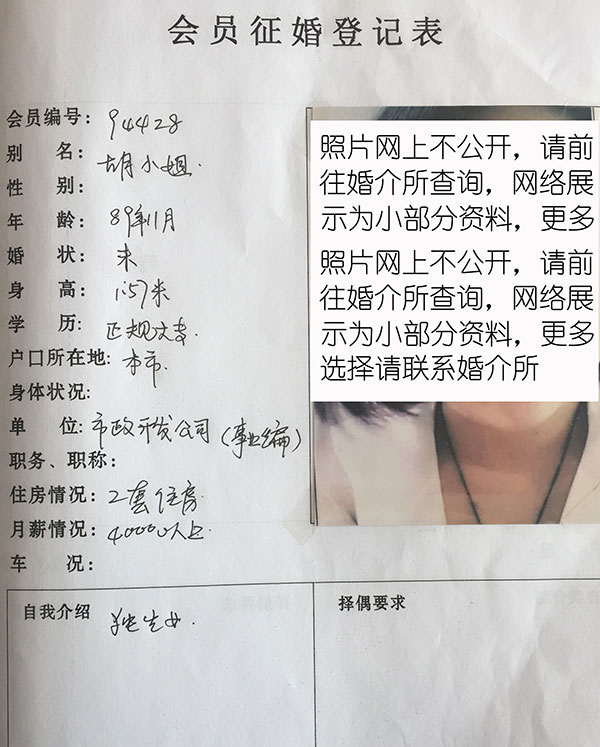 会员征婚登记表
会员编号：94428
别 名：胡小姐.
性 别：
年 龄：89年11月
婚 状：未
身 高：1.57米
学 历：正规大专.
户口所在地：本市.
身体状况:
单 位：市政开发公司（事业编）
职务、职称：
住房情况：2套住房.
月薪情况：4000以上
车 况：
照片网上不公开，请前
往婚介所查询，网络展
示为小部分资料，更多
照片网上不公开，请前
往婚介所查询，网络展
示为小部分资料，更多
选择请联系婚介所
自我介绍 独生女.
择偶要求